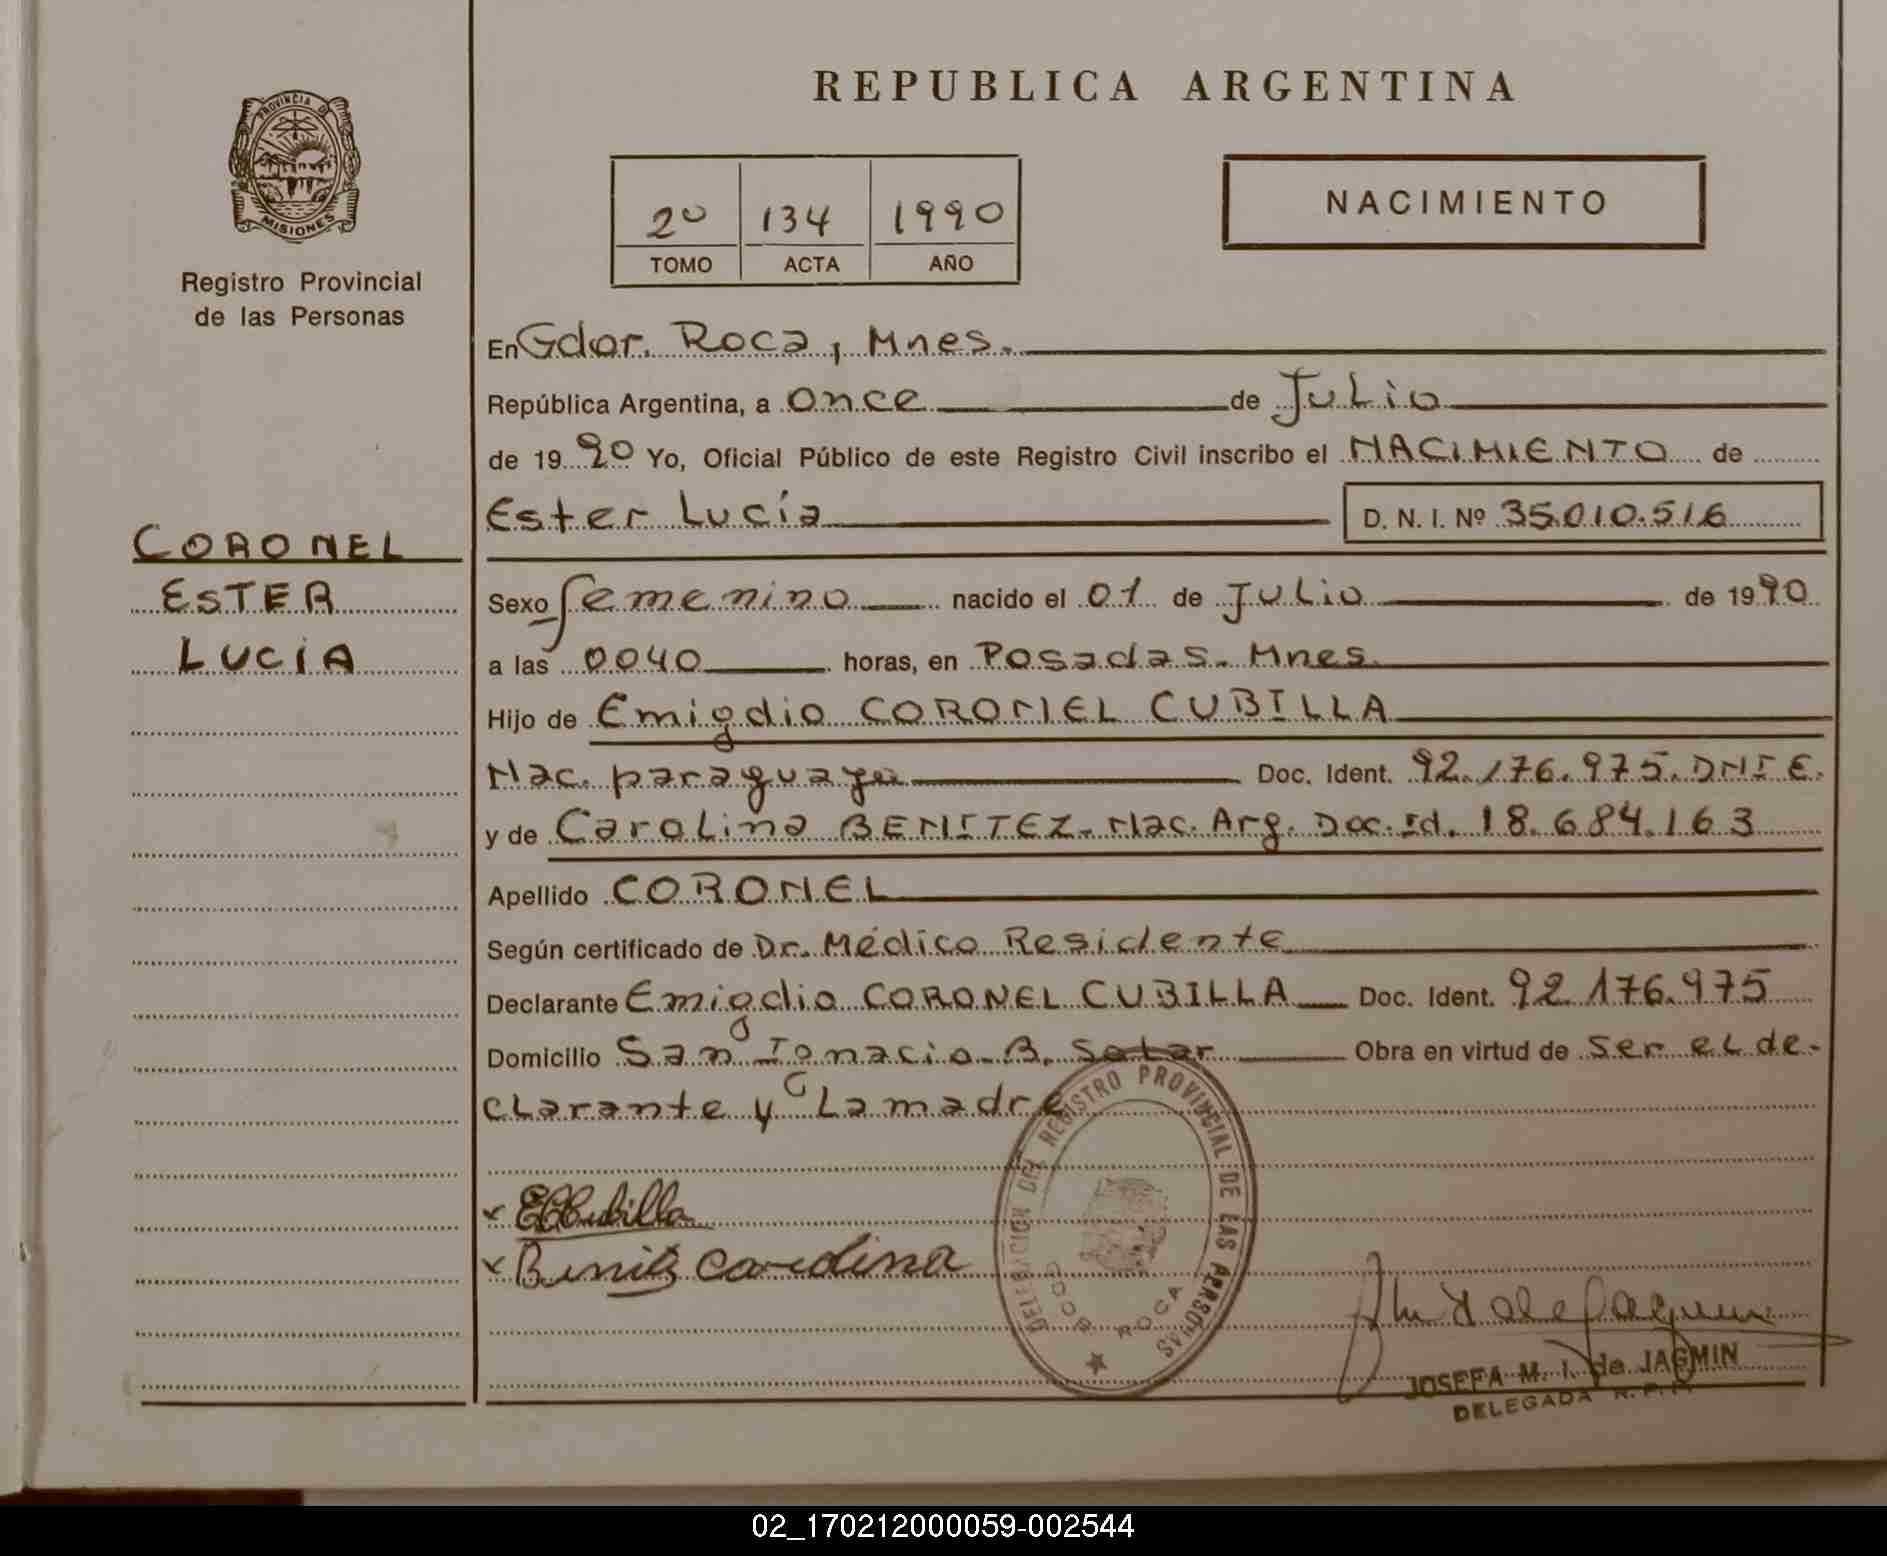 REPUBLICA ARGENTINA
PROVINCIA DE
MISIONES
Registro Provincial
de las Personas
2º 134 1990
TOMO ACTA AÑO
NACIMIENTO
CORONEL
ESTER
LUCÍA
En Gdor. Roca, Mnes.
República Argentina, a once de Julio
de 1990 Yo, Oficial Público de este Registro Civil inscribo el NACIMIENTO de
Ester Lucía D. N. I. Nº 35.010.516
Sexo femenino nacido el 01 de Julio de 1990
a las 0040 horas, en Posadas. Mnes.
Hijo de Emigdio CORONEL CUBILLA
Nac. paraguaya Doc. Ident. 92.176.975. DNI E.
y de Carolina BENITEZ. Nac. Arg. Doc. Id. 18.684.163
Apellido CORONEL
Según certificado de Dr. Médico Residente
Declarante Emigdio CORONEL CUBILLA Doc. Ident. 92.176.975
Domicilio San Ignacio. B. Obra en virtud de ser el de-
clarante y la madre
x ECCubilla
x Benitez Carolina
DELEGACION DEL REGISTRO PROVINCIAL DE LAS PERSONAS
GOB ROCA
JOSEFA M. I. de JAGMIN
DELEGADA R. P. P.
02_170212000059-002544